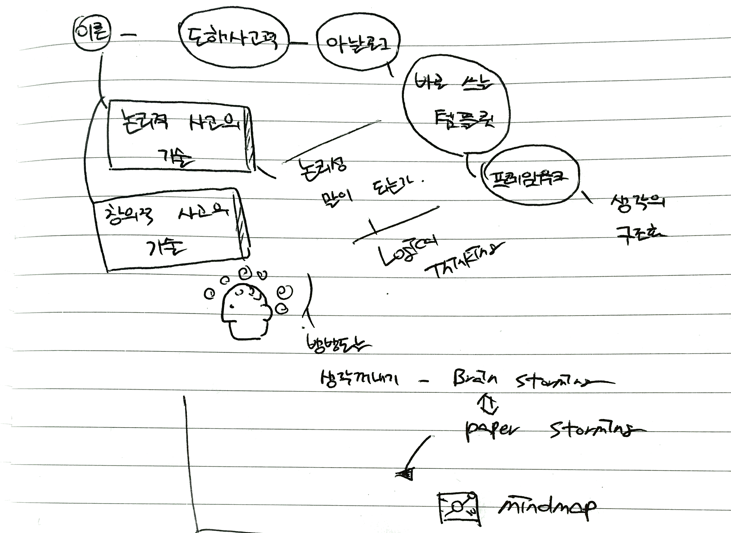 이론 - 도해사고력 - 아날로그
바로 쓰는
템플릿
논리적 사고의
기술
논리성
말이 되는가.
프레임워크
생각의
구조화
창의적 사고의
기술
Logical
Thinking
빙빙도는
생각꺼내기 - Brain storming
paper storming
mindmap